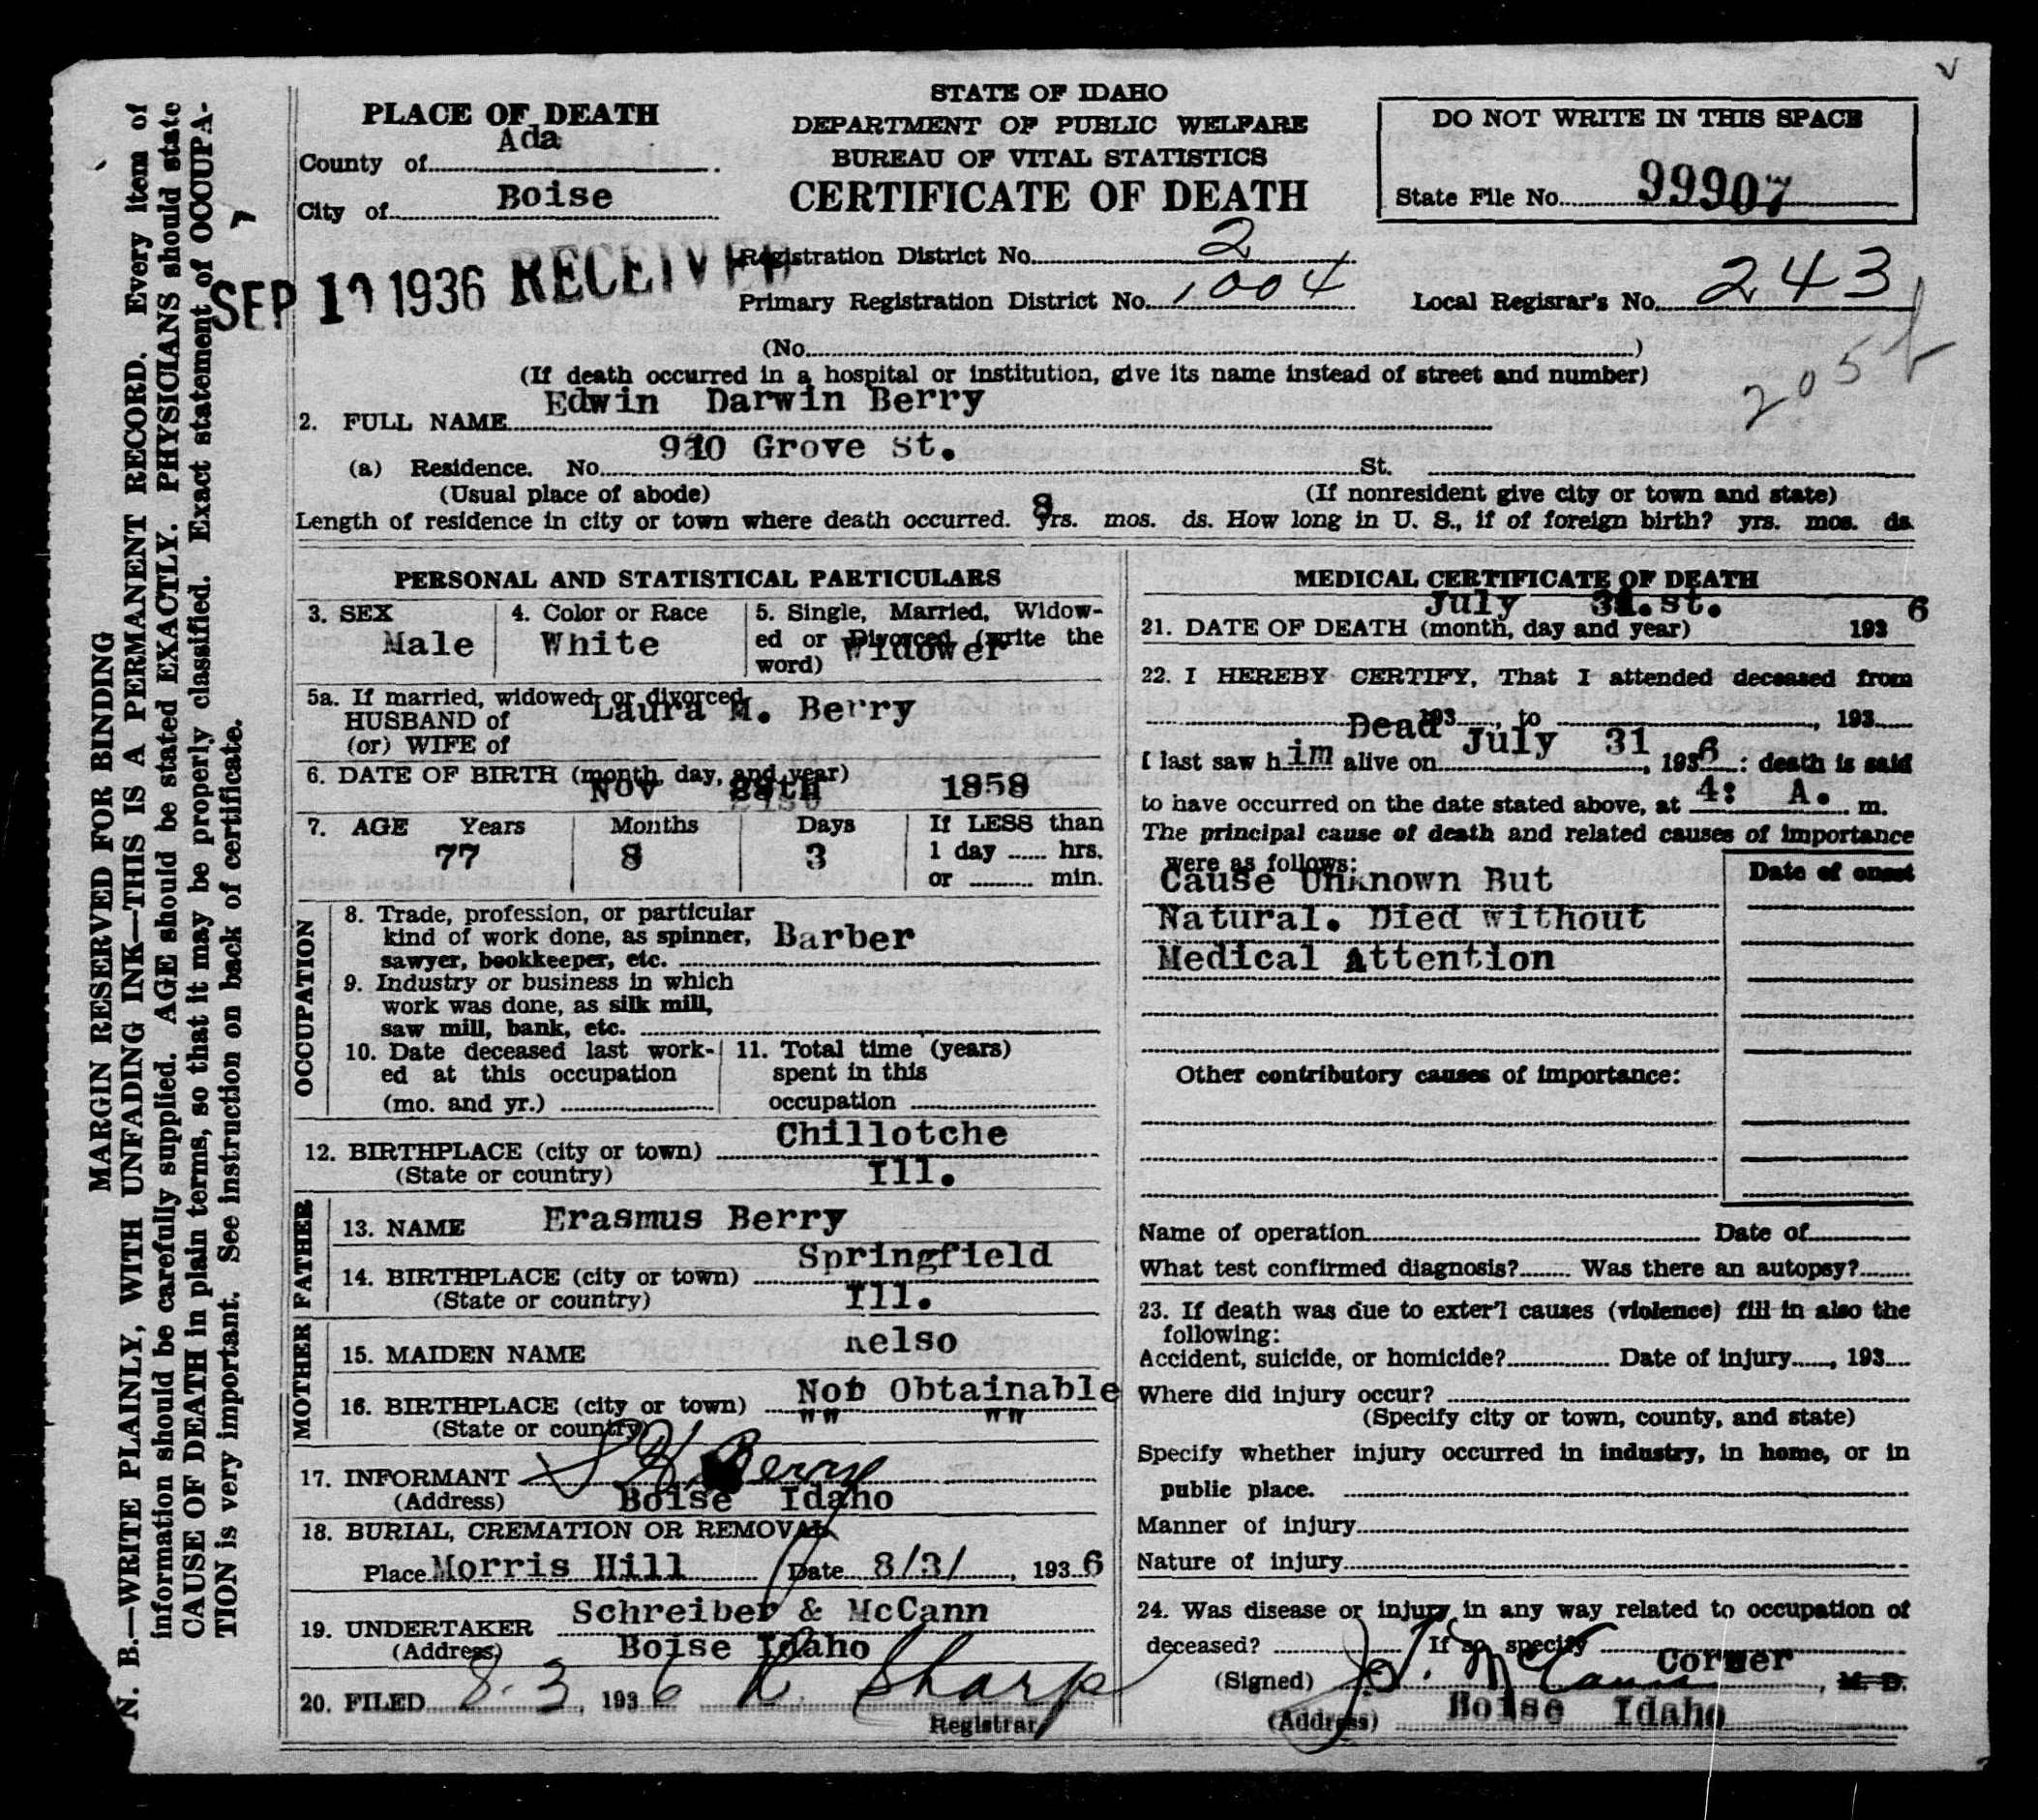 MARGIN RESERVED FOR BINDING
N. B.—WRITE PLAINLY, WITH UNFADING INK—THIS IS A PERMANENT RECORD. Every item of
information should be carefully supplied. AGE should be stated EXACTLY. PHYSICIANS should state
CAUSE OF DEATH in plain terms, so that it may be properly classified. Exact statement of OCCUPA-
TION is very important. See instruction on back of certificate.
PLACE OF DEATH
County of Ada
City of Boise
STATE OF IDAHO
DEPARTMENT OF PUBLIC WELFARE
BUREAU OF VITAL STATISTICS
CERTIFICATE OF DEATH
DO NOT WRITE IN THIS SPACE
State File No. 99907
SEP 10 1936 RECEIVED
Registration District No. 2
Primary Registration District No. 1004
Local Regisrar's No. 243
205
(No. )
(If death occurred in a hospital or institution, give its name instead of street and number)
2. FULL NAME Edwin Darwin Berry
(a) Residence. No. 910 Grove St. St.
(Usual place of abode) (If nonresident give city or town and state)
Length of residence in city or town where death occurred. 8 yrs. mos. ds. How long in U. S., if of foreign birth? yrs. mos. ds.
PERSONAL AND STATISTICAL PARTICULARS
3. SEX Male
4. Color or Race White
5. Single, Married, Widow-
ed or Divorced (write the
word) Widower
5a. If married, widowed or divorced
HUSBAND of Laura M. Berry
(or) WIFE of
6. DATE OF BIRTH (month, day, and year)
Nov 28th 1858
7. AGE Years Months Days If LESS than
77 8 3 1 day hrs.
or min.
OCCUPATION
8. Trade, profession, or particular
kind of work done, as spinner, Barber
sawyer, bookkeeper, etc.
9. Industry or business in which
work was done, as silk mill,
saw mill, bank, etc.
10. Date deceased last work-
ed at this occupation
(mo. and yr.)
11. Total time (years)
spent in this
occupation
12. BIRTHPLACE (city or town) Chillotche
(State or country) Ill.
FATHER
13. NAME Erasmus Berry
14. BIRTHPLACE (city or town) Springfield
(State or country) Ill.
MOTHER
15. MAIDEN NAME Kelso
16. BIRTHPLACE (city or town) Not Obtainable
(State or country) "" ""
17. INFORMANT Berry
(Address) Boise Idaho
18. BURIAL, CREMATION OR REMOVAL
Place Morris Hill Date 8/3/, 1936
19. UNDERTAKER Schreiber & McCann
(Address) Boise Idaho
20. FILED 8-3, 1936 R Sharp
Registrar
MEDICAL CERTIFICATE OF DEATH
July 31.st. 6
21. DATE OF DEATH (month, day and year) 193
22. I HEREBY CERTIFY, That I attended deceased from
193 , to , 193
Dead
I last saw him alive on July 31, 1936 : death is said
to have occurred on the date stated above, at 4: A. m.
The principal cause of death and related causes of importance
were as follows: Date of onset
Cause Unknown But
Natural. Died without
Medical Attention
Other contributory causes of importance:
Name of operation Date of
What test confirmed diagnosis? Was there an autopsy?
23. If death was due to exter'l causes (violence) fill in also the
following:
Accident, suicide, or homicide? Date of injury , 193
Where did injury occur?
(Specify city or town, county, and state)
Specify whether injury occurred in industry, in home, or in
public place.
Manner of injury
Nature of injury
24. Was disease or injury in any way related to occupation of
deceased? If so, specify
(Signed) McCann Corner, M. D.
(Address) Boise Idaho